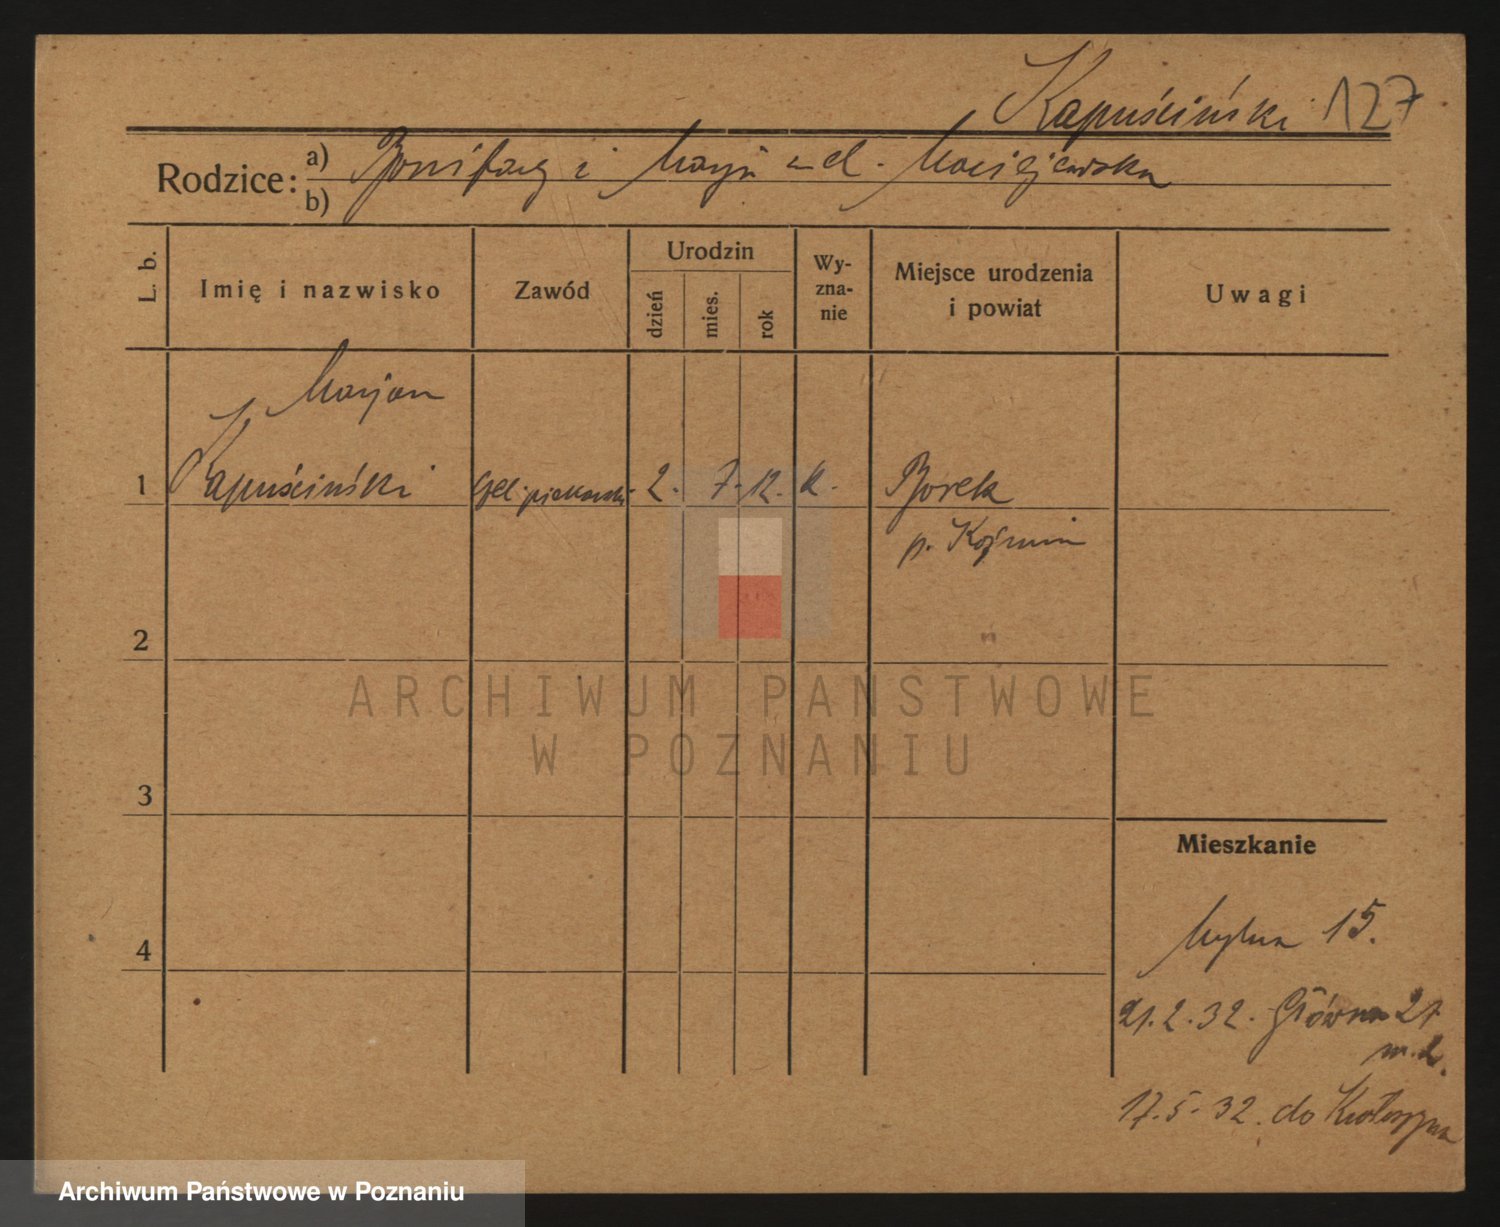 Kapuściński 127
Rodzice: a) Bonifacy i Marja z d. Maciejewska
b)
L. b.
Imię i nazwisko
Zawód
Urodzin
dzień
mies.
rok
Wy-
zna-
nie
Miejsce urodzenia
i powiat
Uwagi
Marjan
1 Kapuściński czel. piekarski 2. 7. 12. k. Borek
p. Koźmin
2
3
4
Mieszkanie
15.
21.2.32. Główna 21
m. 2.
17.5.32. do Krotoszyna
ARCHIWUM PANSTWOWE
W POZNANIU
Archiwum Państwowe w Poznaniu